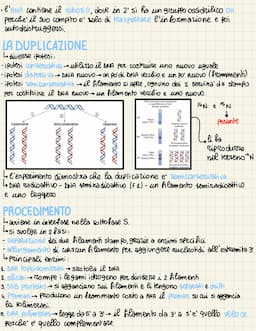 • l'RNA contiene il ribosio, dove in 2' si ha un gruppo ossidrilico OH
perché il suo compito e' solo di trasportare l'informazione e poi
autodistruggersi.
LA DUPLICAZIONE
↳ diverse ipotesi:
• ipotesi conservativa → utilizzo il DNA per costruire uno nuovo uguale
• ipotesi dispersiva → DNA nuovo → un po' di DNA vecchio e un po' nuovo (frammenti)
• ipotesi semiconservativa → il filamento si apre, ognuno dei 2 servira' da stampo
per costituire il DNA nuovo → un filamento vecchio e uno nuovo
¹⁴N e ¹⁵N
pesante
↳ li fa
riprodurre
nel terreno ¹⁴N
• l'esperimento dimostra che la duplicazione e' SEMICONSERVATIVA
↳ DNA radioattivo - DNA semiradioattivo (F1) - un filamento semiradioattivo
e uno leggero
PROCEDIMENTO
↳ avviene in interfase nella sottofase S.
↳ si svolge in 2 fasi:
- separazione dei due filamenti stampo, grazie a enzimi specifici
- allungamento di ciascun filamento per aggiungere nucleotidi all'estremita' 3'
↳ Principali enzimi:
1. DNA topoisomerasi → srotola il DNA
2. elicasi → rompe i legami idrogeno per dividere i 2 filamenti
3. SSB proteins → si agganciano sui filamenti e li tengono separati e
4. Primasi → Producono un frammento corto di RNA il primer su cui si aggancia
la Polimerasi
5. DNA polimerasi → legge da 5' a 3' → il filamento da 3' a 5' e' quello
perche' e' quello complementare